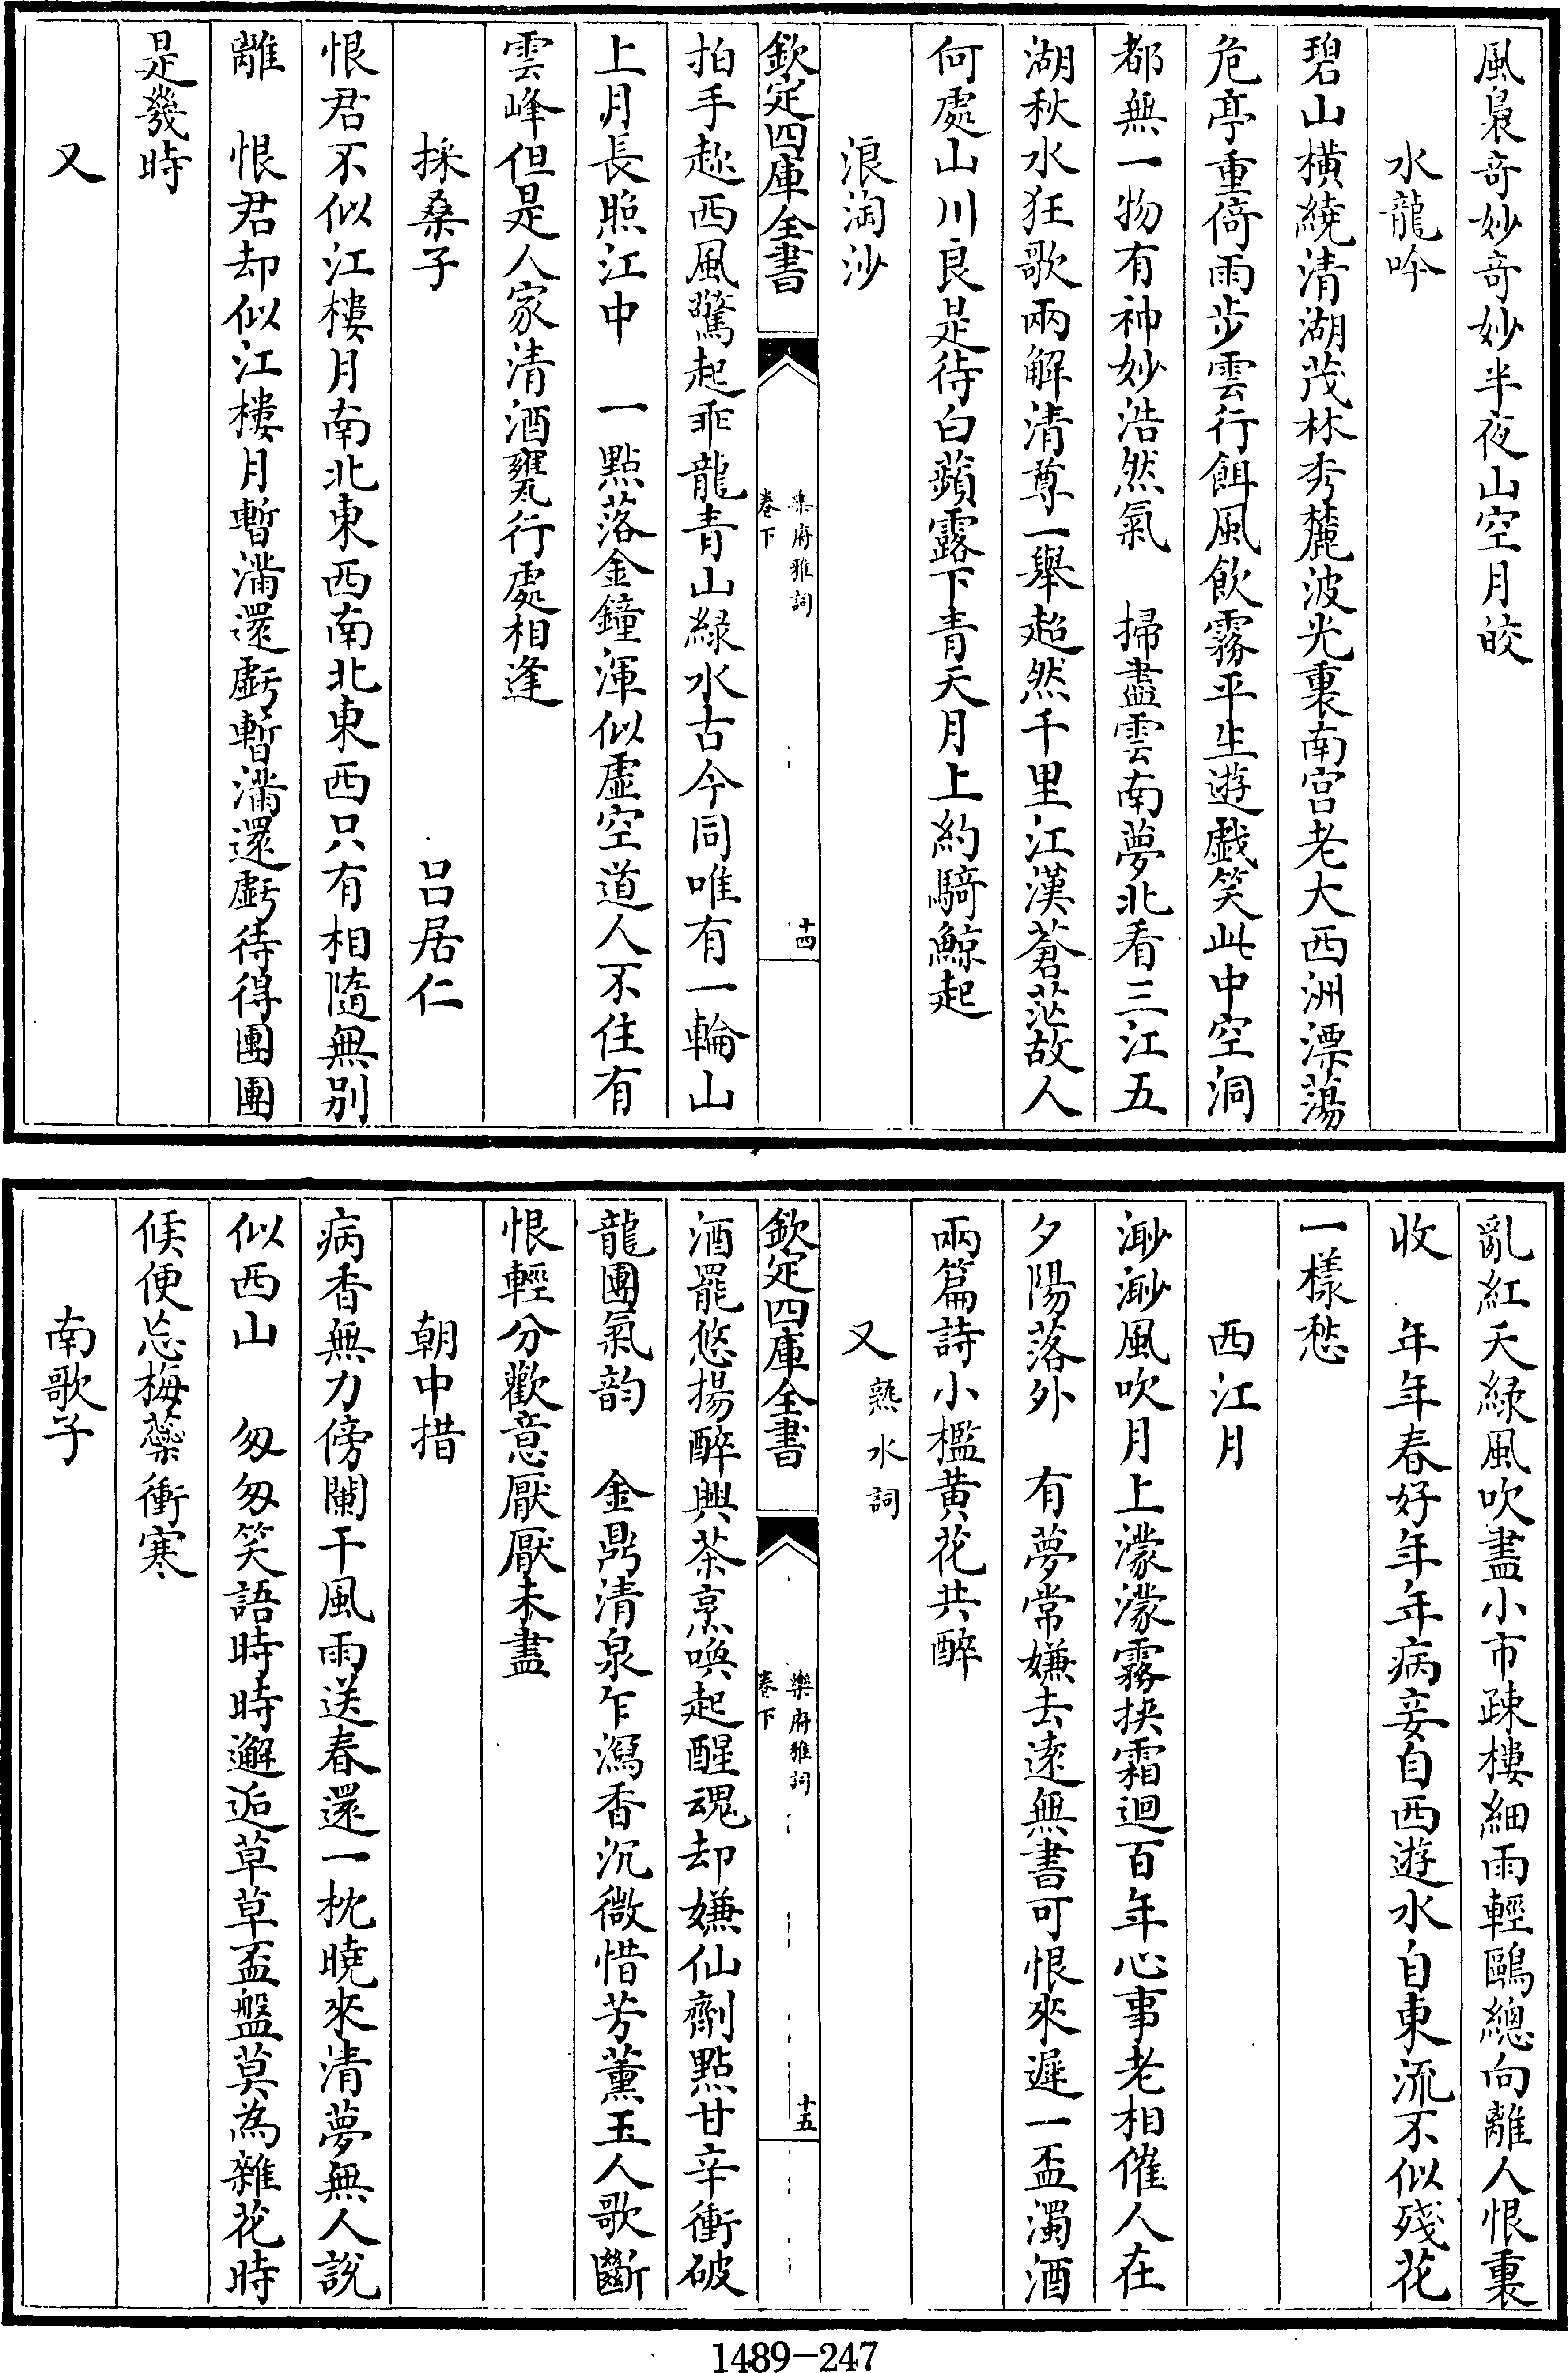 風裊奇妙奇妙半夜山空月皎
水龍吟
碧山橫繞清湖茂林秀麓波光裏南宫老大西洲漂蕩
危亭重倚雨步雲行餌風飲霧平生遊戲笑此中空洞
都無一物有神妙浩然氣　掃盡雲南夢北看三江五
湖秋水狂歌兩解清尊一舉超然千里江漢蒼茫故人
何處山川良是待白蘋露下青天月上約騎鯨起
浪淘沙
欽定四庫全書
樂府雅詞
卷下
十四
拍手趂西風驚起乖龍青山緑水古今同唯有一輪山
上月長照江中　一點落金鐘渾似虚空道人不住有
雲峰但是人家清酒甕行處相逢
採桑子　吕居仁
恨君不似江樓月南北東西南北東西只有相隨無别
離　恨君却似江樓月暫滿還虧暫滿還虧待得團團
是幾時
又
亂紅夭緑風吹盡小市疎樓細雨輕鷗總向離人恨裏
收　年年春好年年病妾自西遊水自東流不似殘花
一樣愁
西江月
渺渺風吹月上濛濛霧挾霜迴百年心事老相催人在
夕陽落外　有夢常嫌去逺無書可恨來遲一盃濁酒
兩篇詩小檻黄花共醉
又熟水詞
欽定四庫全書
樂府雅詞
卷下
十五
酒罷悠揚醉興茶烹喚起醒魂却嫌仙劑點甘辛衝破
龍團氣韵　金鼎清泉乍瀉香沉微惜芳薰玉人歌斷
恨輕分歡意厭厭未盡
朝中措
病香無力傍闌干風雨送春還一枕曉來清夢無人說
似西山　匆匆笑語時時邂逅草草盃盤莫為雜花時
候便忘梅蘂衝寒
南歌子
1489-247